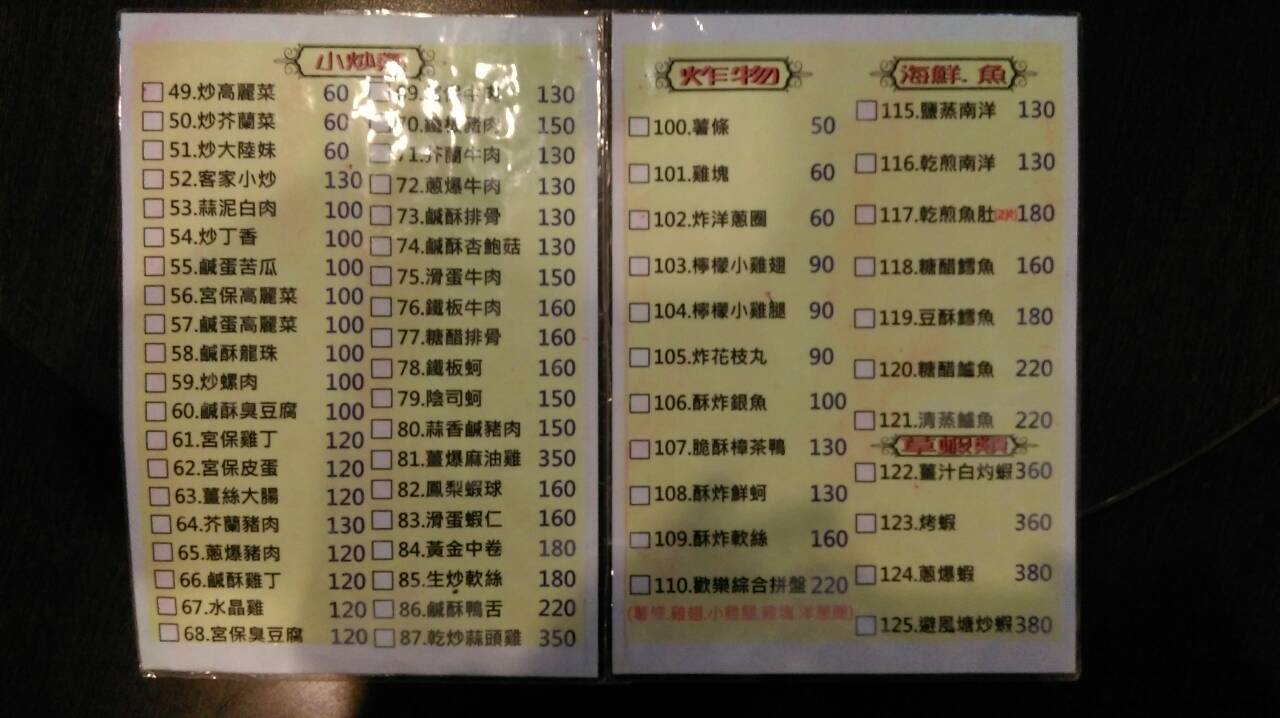 小炒類
49.炒高麗菜 60
50.炒芥蘭菜 60
51.炒大陸妹 60
52.客家小炒 130
53.蒜泥白肉 100
54.炒丁香 100
55.鹹蛋苦瓜 100
56.宮保高麗菜 100
57.鹹蛋高麗菜 100
58.鹹酥龍珠 100
59.炒螺肉 100
60.鹹酥臭豆腐 100
61.宮保雞丁 120
62.宮保皮蛋 120
63.薑絲大腸 120
64.芥蘭豬肉 130
65.蔥爆豬肉 120
66.鹹酥雞丁 120
67.水晶雞 120
68.宮保臭豆腐 120
69.宮保牛肉 130
70.鐵板豬肉 150
71.芥蘭牛肉 130
72.蔥爆牛肉 130
73.鹹酥排骨 130
74.鹹酥杏鮑菇 130
75.滑蛋牛肉 150
76.鐵板牛肉 160
77.糖醋排骨 160
78.鐵板蚵 160
79.陰司蚵 150
80.蒜香鹹豬肉 150
81.薑爆麻油雞 350
82.鳳梨蝦球 160
83.滑蛋蝦仁 160
84.黃金中卷 180
85.生炒軟絲 180
86.鹹酥鴨舌 220
87.乾炒蒜頭雞 350
炸物
100.薯條 50
101.雞塊 60
102.炸洋蔥圈 60
103.檸檬小雞翅 90
104.檸檬小雞腿 90
105.炸花枝丸 90
106.酥炸銀魚 100
107.脆酥樟茶鴨 130
108.酥炸鮮蚵 130
109.酥炸軟絲 160
110.歡樂綜合拼盤 220
(薯條.雞翅.小雞腿.雞塊.洋蔥圈)
海鮮.魚
115.鹽蒸南洋 130
116.乾煎南洋 130
117.乾煎魚肚(2片) 180
118.糖醋鱈魚 160
119.豆酥鱈魚 180
120.糖醋鱸魚 220
121.清蒸鱸魚 220
草蝦類
122.薑汁白灼蝦 360
123.烤蝦 360
124.蔥爆蝦 380
125.避風塘炒蝦 380